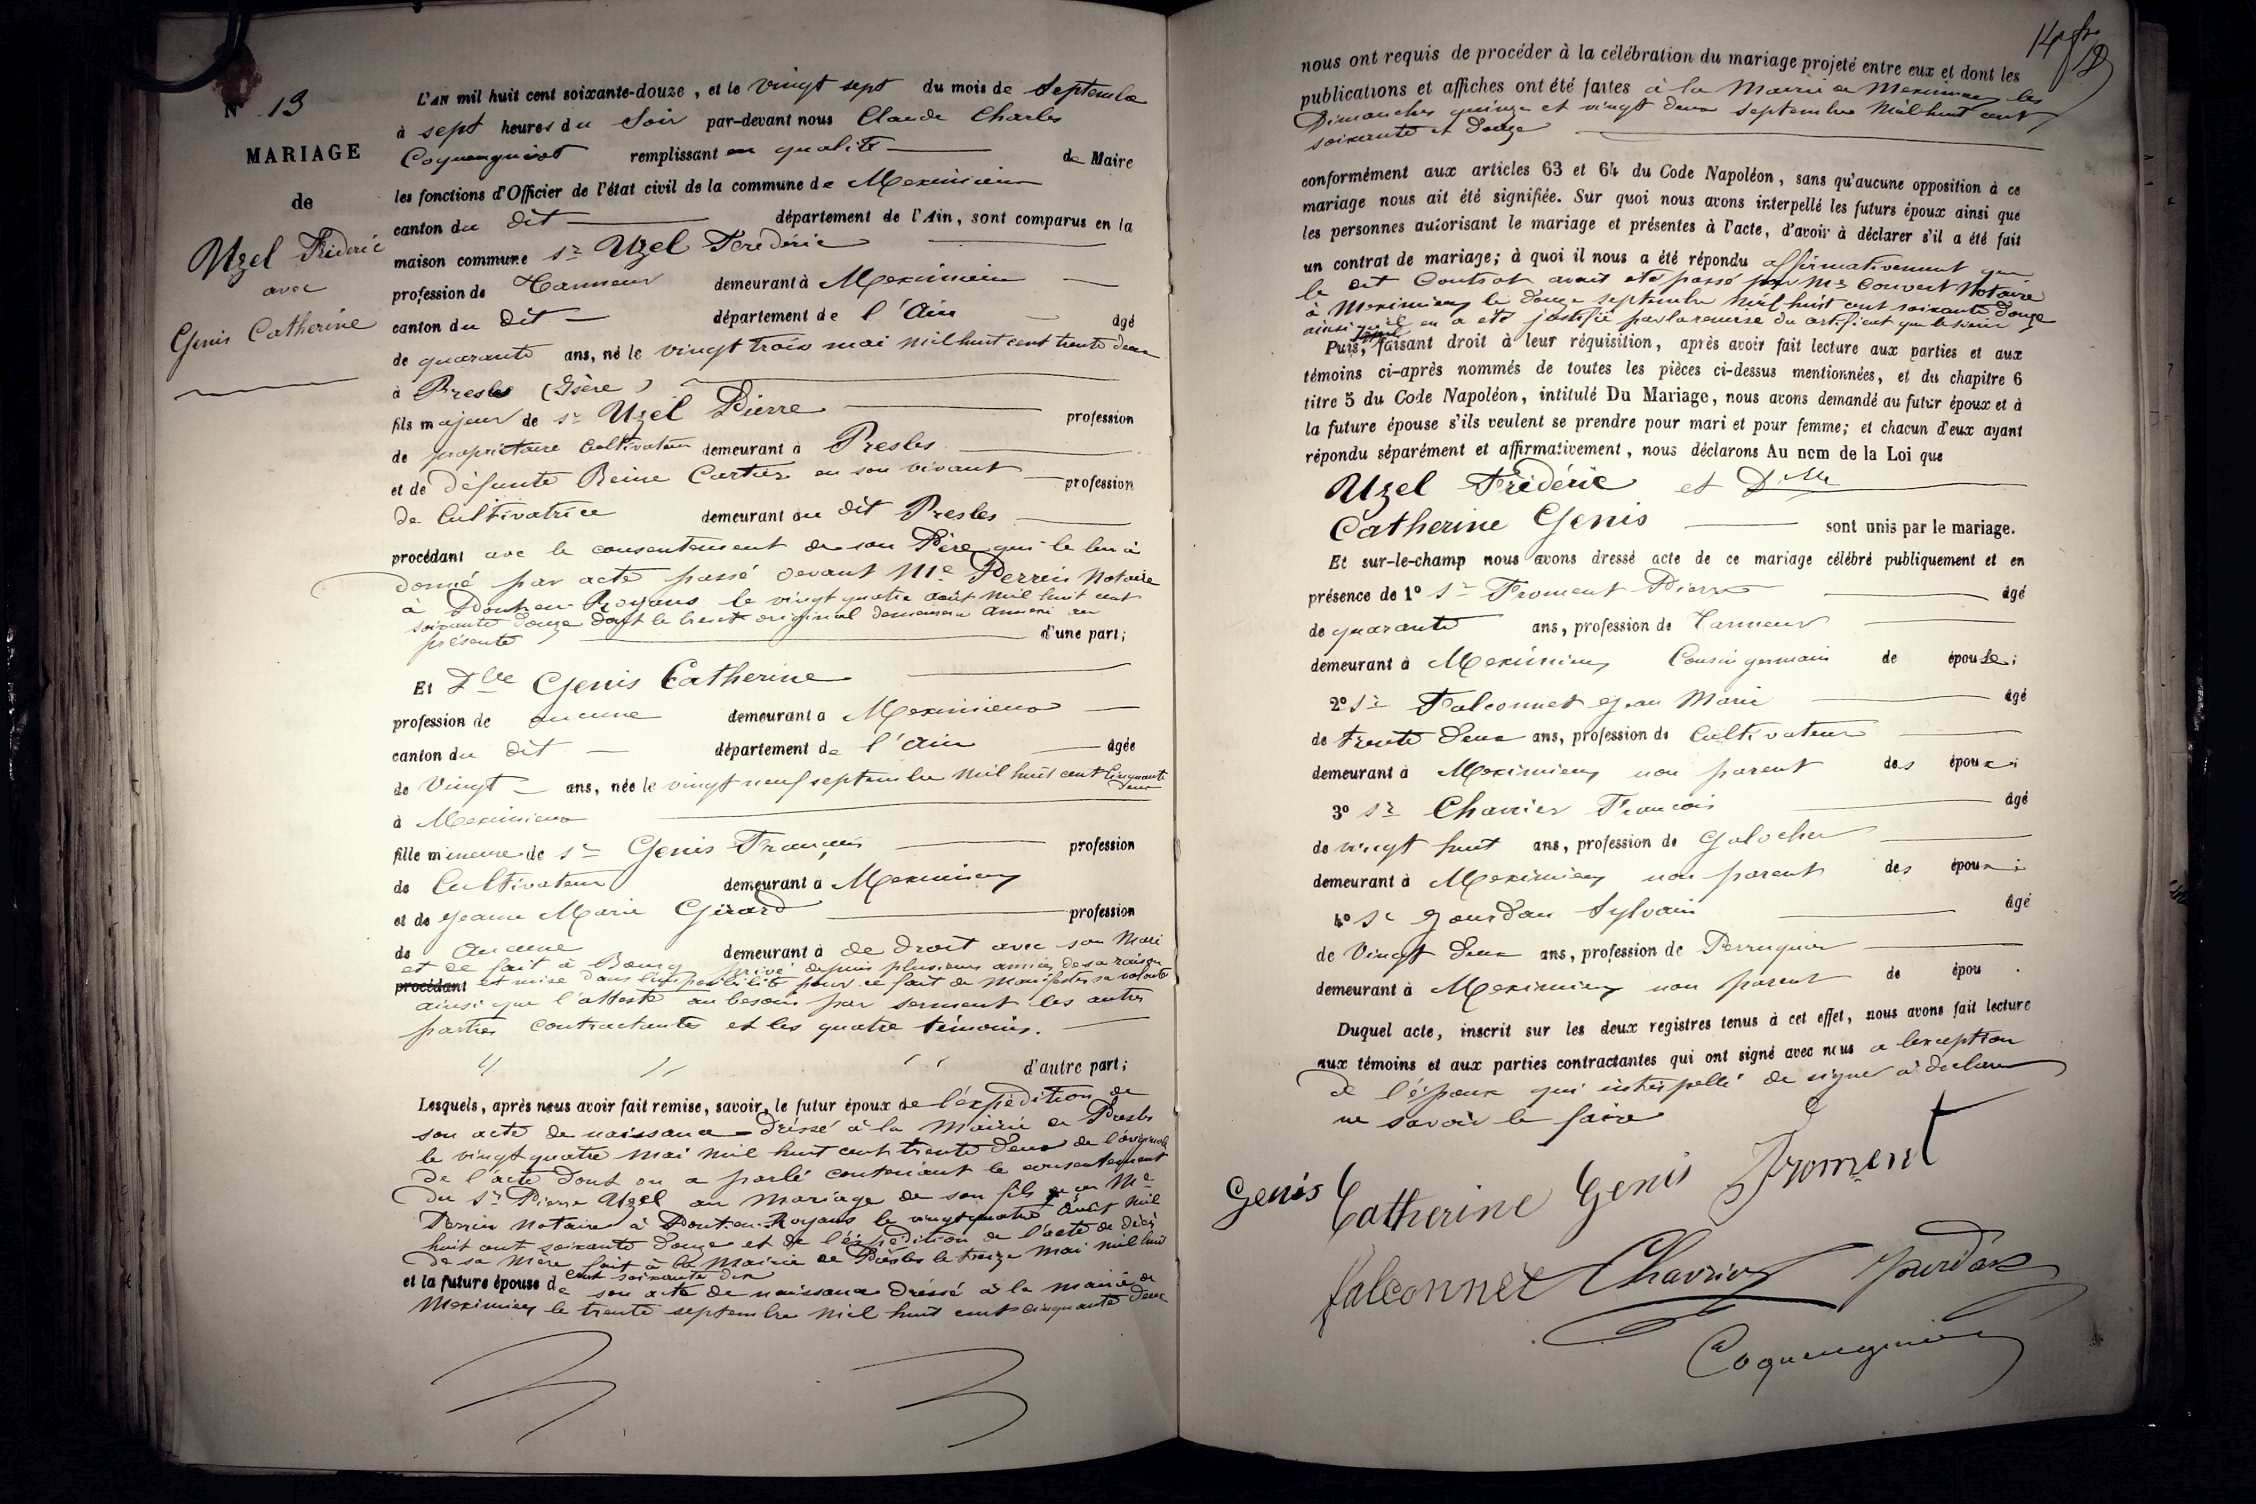 N° 13
MARIAGE
de
Uzel Frédéric
avec
Genis Catherine
L'AN mil huit cent soixante-douze, et le vingt sept du mois de Septembre
à sept heures du Soir par-devant nous Claude Charles
Coquenguiot remplissant en qualité de Maire
les fonctions d'Officier de l'état civil de la commune de Meximieux
canton du dit département de l'Ain, sont comparus en la
maison commune Sr Uzel Frédéric
profession de Tanneur demeurant à Meximieux
canton du dit département de l'Ain âgé
de quarante ans, né le vingt trois mai mil huit cent trente deux
à Presles (Isère)
fils majeur de Sr Uzel Pierre profession
de propriétaire cultivateur demeurant à Presles
et de défunte Reine Cartier en son vivant profession
de Cultivatrice demeurant au dit Presles
procédant avec le consentement de son Père qui le lui a
donné par acte passé devant Me Perrin Notaire
à Pont-en-Royans le vingt quatre août mil huit cent
soixante douze dont le brevet original demeurera annexé au
présente d'une part;
Et Dlle Genis Catherine
profession de aucune demeurant à Meximieux
canton du dit département de l'Ain âgée
de Vingt ans, née le vingt neuf septembre mil huit cent cinquante
deux
à Meximieux
fille mineure de Sr Genis François profession
de Cultivateur demeurant à Meximieux
et de Jeanne Marie Girard profession
de Aucune demeurant à de droit avec son Mari
et de fait à Bourg privé depuis plusieurs années de sa raison
procédant et mise dans l'impossibilité pour ce fait de manifester sa volonté
ainsi que l'atteste au besoin par serment les autres
parties contractantes et les quatre témoins.
d'autre part;
Lesquels, après nous avoir fait remise, savoir, le futur époux de l'expédition de
son acte de naissance dressé à la Mairie de Presles
le vingt quatre mai mil huit cent trente deux de l'original
de l'acte dont on a parlé contenant le consentement
du Sr Pierre Uzel au mariage de son fils Me
Perrin Notaire à Pont-en-Royans le vingt quatre Août mil
huit cent soixante douze et de l'expédition de l'acte de décès
de sa mère fait à la Mairie de Presles le treize mai mil huit
cent soixante dix
et la future épouse de son acte de naissance dressé à la mairie de
Meximieux le trente septembre mil huit cent cinquante deux
nous ont requis de procéder à la célébration du mariage projeté entre eux et dont les
publications et affiches ont été faites à la Mairie de Meximieux les
Dimanches quinze et vingt deux septembre mil huit cent
soixante et douze
conformément aux articles 63 et 64 du Code Napoléon, sans qu'aucune opposition à ce
mariage nous ait été signifiée. Sur quoi nous avons interpellé les futurs époux ainsi que
les personnes autorisant le mariage et présentes à l'acte, d'avoir à déclarer s'il a été fait
un contrat de mariage; à quoi il nous a été répondu affirmativement que
le dit Contrat avait été passé par Me Convert Notaire
à Meximieux le douze septembre mil huit cent soixante douze
ainsi qu'il en a été justifié par la remise du certificat que le sieur
Puis, faisant droit à leur réquisition, après avoir fait lecture aux parties et aux
témoins ci-après nommés de toutes les pièces ci-dessus mentionnées, et du chapitre 6
titre 5 du Code Napoléon, intitulé Du Mariage, nous avons demandé au futur époux et à
la future épouse s'ils veulent se prendre pour mari et pour femme; et chacun d'eux ayant
répondu séparément et affirmativement, nous déclarons Au nom de la Loi que
Uzel Frédéric et Dlle
Catherine Genis sont unis par le mariage.
Et sur-le-champ nous avons dressé acte de ce mariage célébré publiquement et en
présence de 1° Sr Froment Pierre âgé
de quarante ans, profession de Tanneur
demeurant à Meximieux Cousin germain de épouse;
2° Sr Falconnet Jean Marie âgé
de trente deux ans, profession de Cultivateur
demeurant à Meximieux non parent des époux;
3° Sr Charrier François âgé
de vingt huit ans, profession de Galocher
demeurant à Meximieux non parent des époux;
4° Sr Jourdan Sylvain âgé
de Vingt deux ans, profession de Perruquier
demeurant à Meximieux non parent de épou .
Duquel acte, inscrit sur les deux registres tenus à cet effet, nous avons fait lecture
aux témoins et aux parties contractantes qui ont signé avec nous a lexception
de l'époux qui interpellé de signer a déclaré
ne savoir le faire
Genis Catherine Genis Froment
falconnet Charrier Jourdan
Coquenguiot